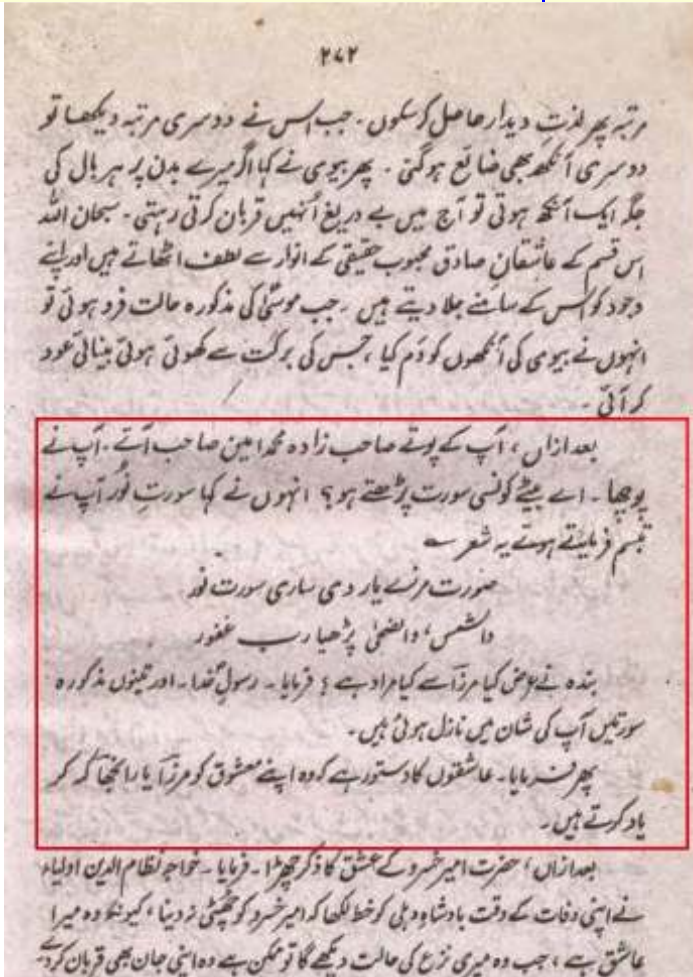 ۲۷۲
مرتبہ پھر لذتِ دیدار حاصل کر سکوں۔ جب اس نے دوسری مرتبہ دیکھا تو
دوسری آنکھ بھی ضائع ہوگئی۔ پھر بیوی نے کہا اگر میرے بدن پر ہر بال کی
جگہ ایک آنکھ ہوتی تو آج میں بے دریغ انہیں قربان کرتی رہتی۔ سبحان اللہ
اس قسم کے عاشقانِ صادق محبوب حقیقی کے انوار سے لطف اٹھاتے ہیں اور اپنے
وجود کو اس کے سامنے جلا دیتے ہیں۔ جب موسیٰؑ کی مذکورہ حالت فرو ہوئی تو
انہوں نے بیوی کی آنکھوں کو دَم کیا، جس کی برکت سے کھوئی ہوئی بینائی عود
کر آئی۔
بعد ازاں، آپ کے پوتے صاحب زادہ محمد امین صاحب آئے۔ آپ نے
پوچھا۔ اے بیٹے کونسی سورت پڑھتے ہو؟ انہوں نے کہا سورتِ نُور آپ نے
تبسم فرماتے ہوئے یہ شعر ؎
صورت مرزے یار دی ساری سورت نور
والشمس، والضحیٰ پڑھیا رب غفور
بندہ نے عرض کیا مرزآ سے کیا مراد ہے؟ فرمایا۔ رسولِ خدا۔ اور تینوں مذکورہ
سورتیں آپ کی شان میں نازل ہوئی ہیں۔
پھر فرمایا۔ عاشقوں کا دستور ہے کہ وہ اپنے معشوق کو مرزآ یا رانجھآ کہہ کر
یاد کرتے ہیں۔
بعد ازاں، حضرت امیر خسرو کے عشق کا ذکر چھڑا۔ فرمایا۔ خواجہ نظام الدین اولیاء
نے اپنی وفات کے وقت بادشاہِ دہلی کو خط لکھا کہ امیر خسرو کو چھٹی نہ دینا، کیونکہ وہ میرا
عاشق ہے، جب وہ میری نزع کی حالت دیکھے گا تو ممکن ہے وہ اپنی جان بھی قربان کردے